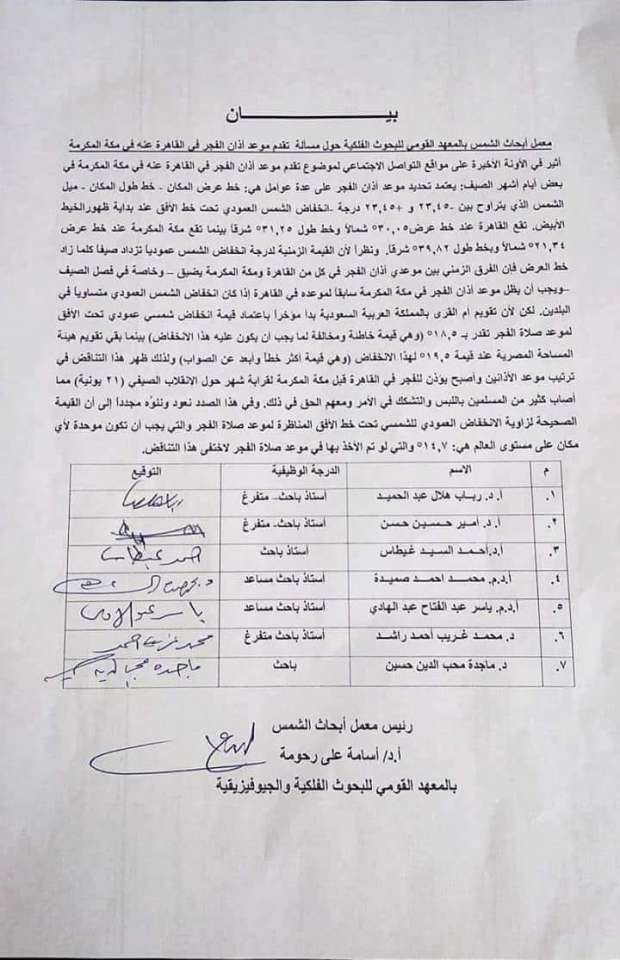 بيـــــــــان
معمل أبحاث الشمس بالمعهد القومي للبحوث الفلكية حول مسألة تقدم موعد أذان الفجر في القاهرة عنه في مكة المكرمة
أثير في الآونة الأخيرة على مواقع التواصل الاجتماعي لموضوع تقدم موعد أذان الفجر في القاهرة عنه في مكة المكرمة في
بعض أيام أشهر الصيف: يعتمد تحديد موعد أذان الفجر على عدة عوامل هي: خط عرض المكان - خط طول المكان - ميل
الشمس الذي يتراوح بين -٢٣,٤٥ و +٢٣,٤٥ درجة -انخفاض الشمس العمودي تحت خط الأفق عند بداية ظهورالخيط
الأبيض. تقع القاهرة عند خط عرض ٣٠,٠٥° شمالاً وخط طول ٣١,٢٥° شرقاً بينما تقع مكة المكرمة عند خط عرض
٢١,٣٤° شمالاً وبخط طول ٣٩,٨٢° شرقاً. ونظراً لأن القيمة الزمنية لدرجة انخفاض الشمس عمودياً تزداد صيفاً كلما زاد
خط العرض فإن الفرق الزمني بين موعدي أذان الفجر في كل من القاهرة ومكة المكرمة يضيق – وخاصة في فصل الصيف
–ويجب أن يظل موعد أذان الفجر في مكة المكرمة سابقاً لموعده في القاهرة إذا كان انخفاض الشمس العمودي متساوياً في
البلدين. لكن لأن تقويم أم القرى بالمملكة العربية السعودية بدأ مؤخراً باعتماد قيمة انخفاض شمسي عمودي تحت الأفق
لموعد صلاة الفجر تقدر بـ ١٨,٥° (وهي قيمة خاطئة ومخالفة لما يجب أن يكون عليه هذا الانخفاض) بينما بقي تقويم هيئة
المساحة المصرية عند قيمة ١٩,٥° لهذا الانخفاض (وهي قيمة أكثر خطأ وأبعد عن الصواب) ولذلك ظهر هذا التناقض في
ترتيب موعد الأذانين وأصبح يؤذن للفجر في القاهرة قبل مكة المكرمة لقرابة شهر حول الإنقلاب الصيفي (٢١ يونية) مما
أصاب كثير من المسلمين باللبس والتشكك في الأمر ومعهم الحق في ذلك. وفي هذا الصدد نعود وننوُه مجدداً إلى أن القيمة
الصحيحة لزاوية الانخفاض العمودي للشمسي تحت خط الأفق المناظرة لموعد صلاة الفجر والتي يجب أن تكون موحدة لأي
مكان على مستوى العالم هي: ١٤,٧° والتي لو تم الأخذ بها في موعد صلاة الفجر لاختفى هذا التناقض.
م الاسم الدرجة الوظيفية التوقيع
١. أ.د. رباب هلال عبد الحميد أستاذ باحث– متفرغ
٢. أ.د. أمير حسين حسن أستاذ باحث- متفرغ
٣. أ.د.أحمد السيد غيطاس أستاذ باحث احمد غيطاس
٤. أ.د.م. محمد احمد صميدة أستاذ باحث مساعد
٥. أ.د.م. ياسر عبد الفتاح عبد الهادي أستاذ باحث مساعد ياسر عبدالهادى
٦. د. محمد غريب أحمد راشد أستاذ باحث متفرغ محمد غريب احمد
٧. د. ماجدة محب الدين حسين باحث ماجدة محب الدين
رئيس معمل أبحاث الشمس
أ.د/ أسامة على رحومة
بالمعهد القومي للبحوث الفلكية والجيوفيزيقية